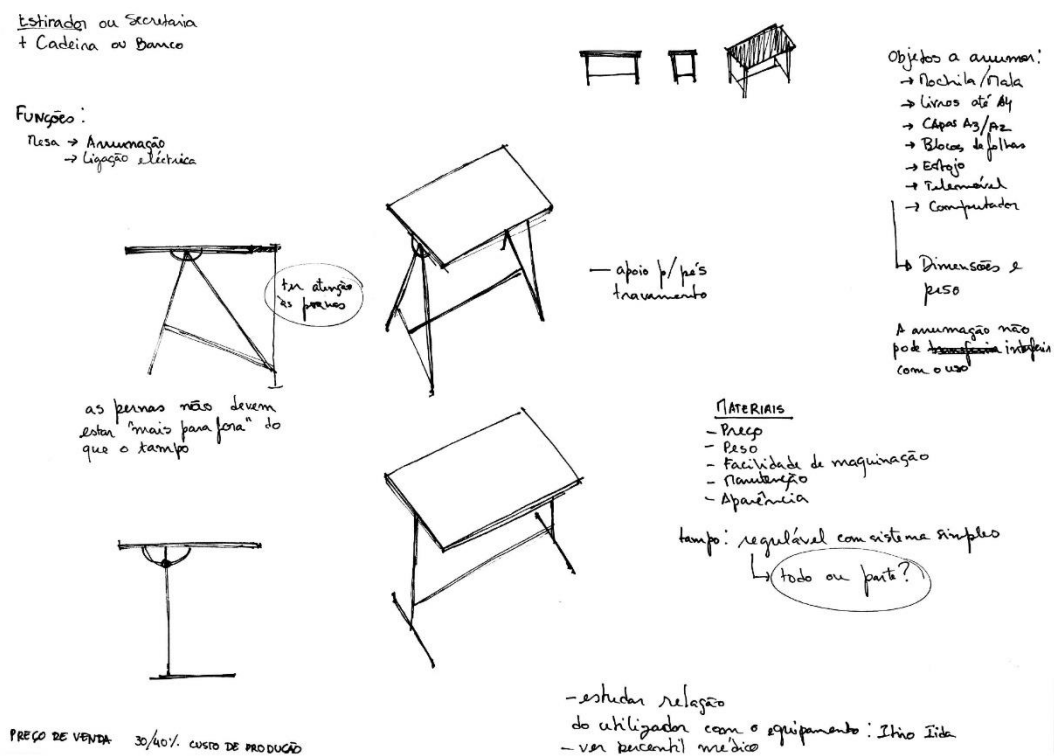 Estirador ou Secretaria
+ Cadeira ou Banco
Funções:
Mesa → Arrumação
→ Ligação eléctrica
ter atenção
às pernas
as pernas não devem
estar "mais para fora" do
que o tampo
PREÇO DE VENDA 30/40% CUSTO DE PRODUÇÃO
— apoio p/ pés
travamento
Objetos a arrumar:
→ Mochila/Mala
→ Livros até A4
→ Capas A3/A2
→ Blocos de folhas
→ Estojo
→ Telemóvel
→ Computador
↳ Dimensões e
peso
A arrumação não
pode interferir
com o uso
MATERIAIS
- Preço
- Peso
- Facilidade de maquinação
- Manutenção
- Aparência
tampo: regulável com sistema simples
↳ todo ou parte?
- estudar relação
do utilizador com o equipamento: Itiro Iida
- ver percentil médico